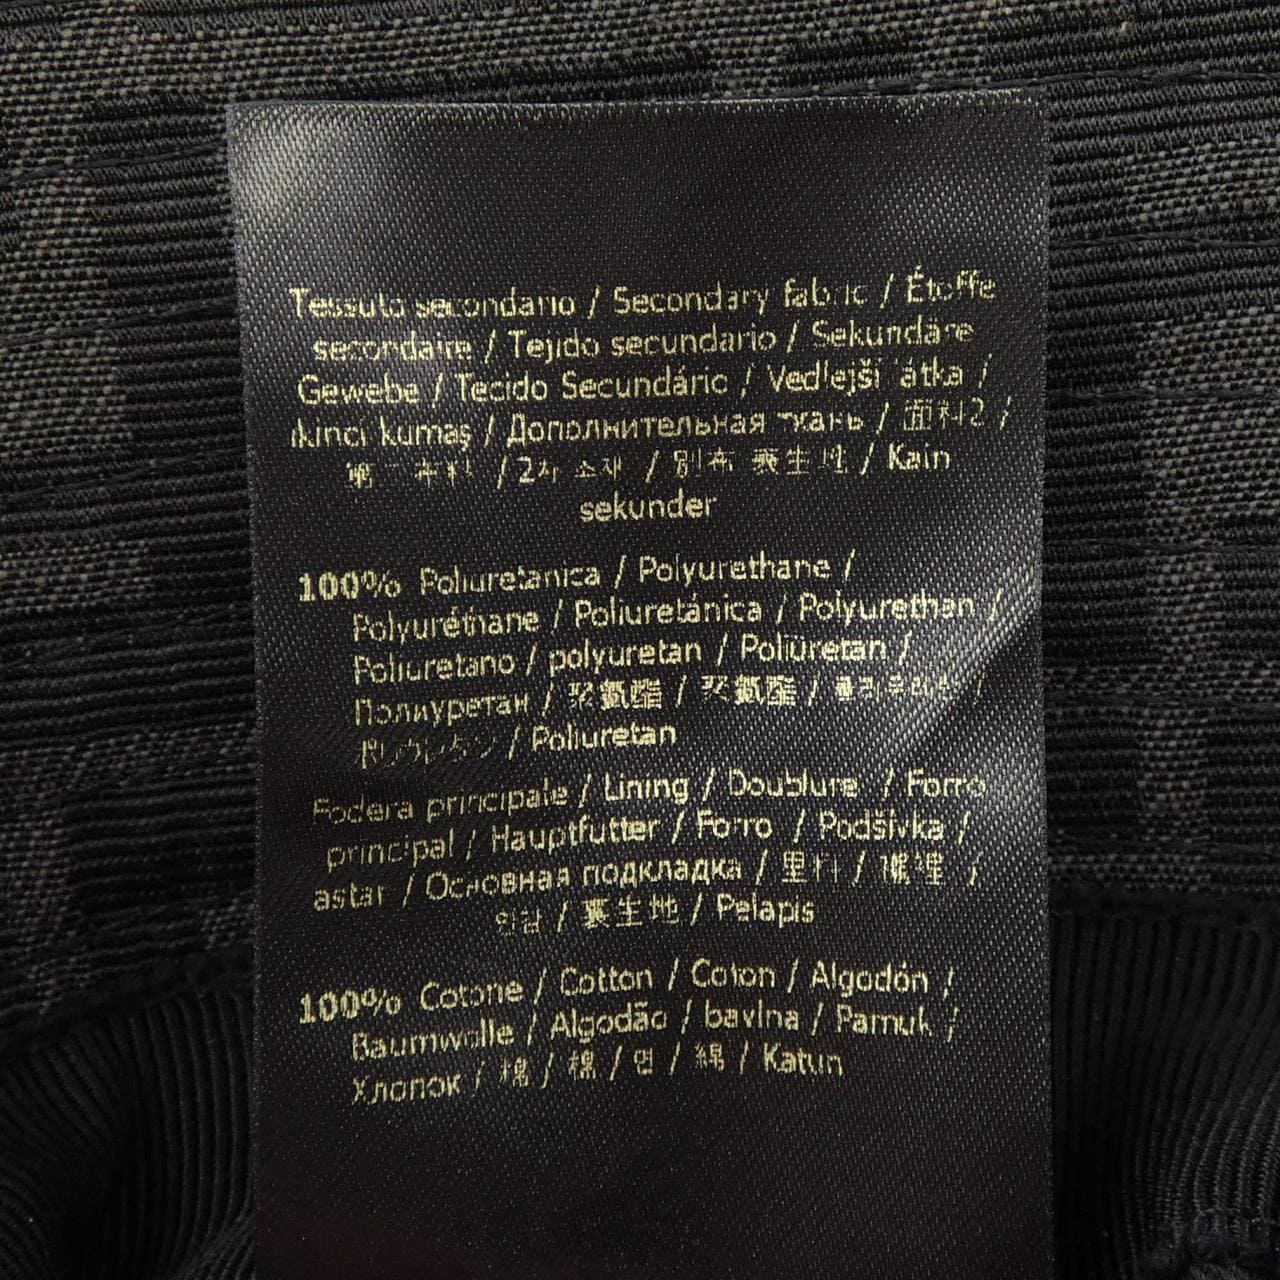 Tessuto secondario / Secondary fabric / Étoffe
secondaire / Tejido secundario / Sekundäre
Gewebe / Tecido Secundáric / Vedlejší látka /
ikinci kumaş / Дополнительная ткань / 面料2 /
第二布料 / 2차 소재 / 別布 裏生地 / Kain
sekunder
100% Poliuretanica / Polyurethane /
Polyuréthane / Poliuretánica / Polyurethan /
Poliuretano / polyuretan / Poliüretan /
Полиуретан / 聚氨酯 / 聚氨酯 / 폴리우레탄 /
ﾎﾟﾘウレタン / Poliuretan
Fodera principale / Lining / Doublure / Forro
principal / Hauptfutter / Forro / Podšívka /
astar / Основная подкладка / 里料 / 襯裡 /
안감 / 裏生地 / Pelapis
100% Cotone / Cotton / Coton / Algodón /
Baumwolle / Algodão / bavlna / Pamuk /
Хлопок / 棉 / 棉 / 면 / 綿 / Katun